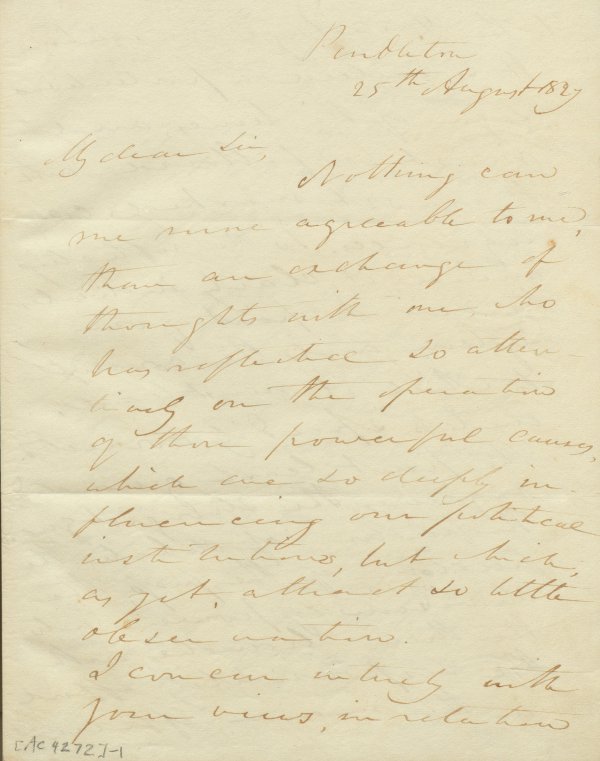 Pendleton
25th August 1827
My dear Sir,
Nothing can
me more agreeable to me,
than an exchange of
thoughts with one, who
has reflected so atten
tively on the operation
of those powerful causes,
which are so deeply in
fluencing our political
institutions, but which,
as yet, attract so little
observation.
I concur intirely with
your views, in relation
[AC 4272]-1